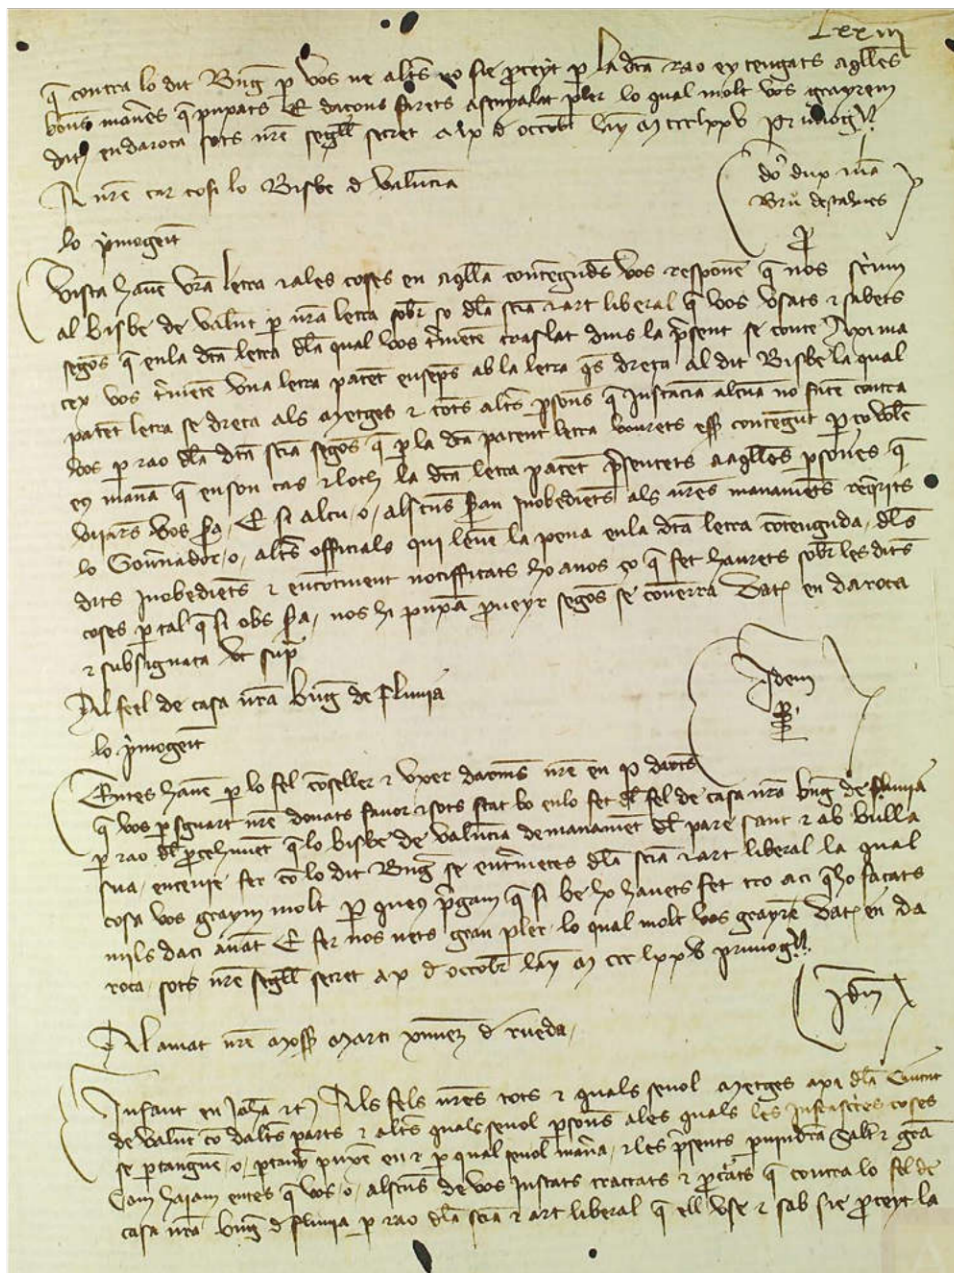 Lxxiii
q contra lo dit Bng p vos ne altrs no sie proceyt p la dta rao ey tengats aqlles
bons maneres q puxats E daçons farets asenyalat pler lo qual molt vos grayrem
dat en daroca sots nre segll secret a ix d octobr lany M ccclxxv Primogts
A nre car cosi lo Bisbe d Valencia
do dux ma
Bru descalmes
lo primogenit
Vista havem vra letra e ales coses en aqlla contengudes vos responem q nos scrivim
al bisbe de valencia p nra letra sobr so dla scia e art liberal q vos usats e sabets
segons q enla dta letra dla qual vos trametem traslat dins la present se conte Axi ma
tex vos trametem una letra patent ensemps ab la letra qs dreça al dit Bisbe la qual
patent letra se dreça als metges e tots altrs psones q instancia alcuna no facen contra
vos p rao dla dta scia segons q p la dta patent letra veurets esser contengut p ço volem
eus manam q en son cas e loch la dta letra patent presentets a aqlles psones q
vijares vos sera E si alcu o alscuns seran inobedients als nres manaments reqrits
lo Governador o altrs officials qui leven la pena enla dta letra contenguda dls
dits inobedients e encontinent notifficats ho anos ço q fet haurets sobr les dits
coses p tal q si obs sera nos hi puxam proveyr segons se converra Dat en daroca
e subsignata ut supra
Idem
Al feel de casa nra bng de fluvia
lo primogenit
Entes havem p lo fel conseller e uxer darmes nre en p darters
q vos p sguart nre donats favor e sots stat bo enlo fet del fel de casa nra bng de fluvia
p rao dl procehiment q lo bisbe de valencia de manament dl pare sant e ab bulla
sua entenie fer com lo dit Bng se entrameses dla scia e art liberal la qual
cosa vos graym molt p queus pregam q si be ho havets fet tro aci q ho façats
mils daci avant E fer nos nets gran pler lo qual molt vos grayrem Dat en da
roca sots nre segll secret a x d octobr lany M ccc lxxv primogts
Idm
Al amat nre moss marti ximenez d rueda
Infant en Johan etc Als fels nres tots e quals sevol metges axi dla Ciutat
de valencia com daltrs parts e altrs quals sevol psones ales quals les infrascrites coses
se ptanguen o ptanyer puxen en e p qual sevol manera e les presents pvindran Salut e gracia
Com hajam entes q vos o alscuns de vos instats tractats e procurats q contra lo fel de
casa nra bng d fluvia p rao dla scia e art liberal q ell use e sab sie proceyt la